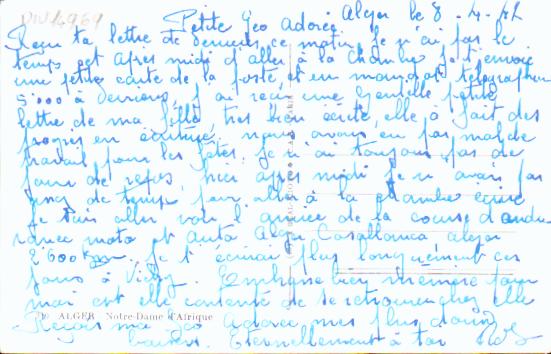 DIV 4969
Alger le 8-4-
Petite Géo Adorée
Reçu ta lettre de ce matin, Je n'ai pas le
temps cet après midi d'aller à la chambre je t'envoie
une petite carte de la poste et en mandat télégraphe
5.000 à j'ai reçu une gentille petite
lettre de ma fille, très bien écrite, elle a fait des
progrès en écriture, nous avons eu pas mal de
travail pour les fêtes. Je n'ai toujours pas de
jour de repos, hier après midi je n'avais pas
de temps pour aller à la chambre écrire
Je suis aller voir l'arrivée de la course d'endu
rance moto et auto Alger Casablanca Alger
2600 km. Je t'écrirai plus longuement ces
jours à Vichy. Embrasse bien pour
moi est elle contente de se retrouver chez elle
210 ALGER Notre-Dame d'Afrique
Reçois ma Géo Adorée mes plus doux
baisers. Eternellement à toi